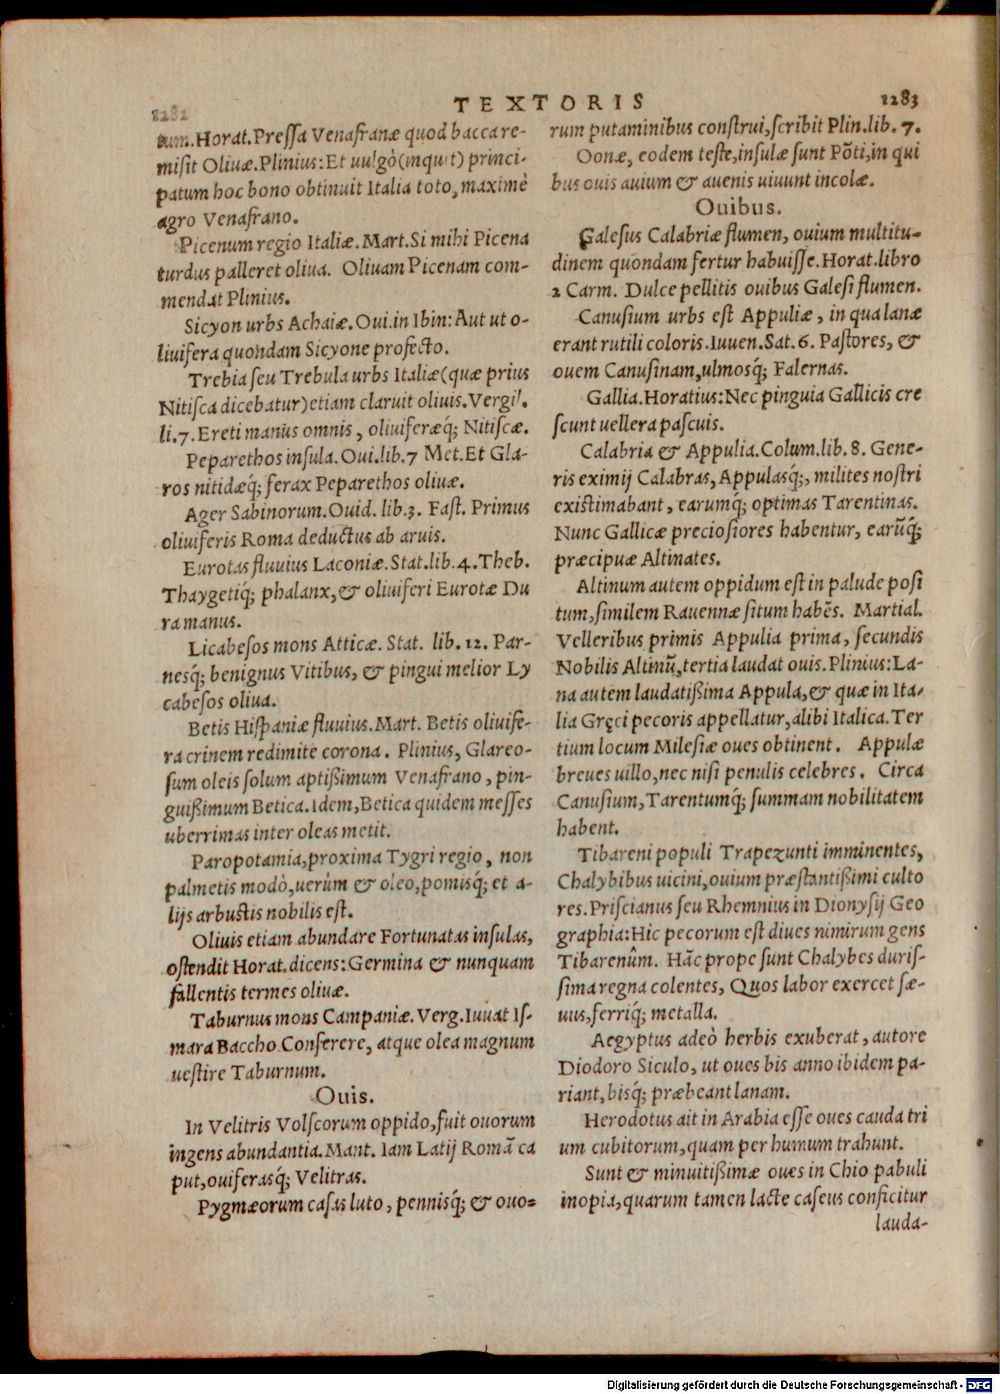 1282
TEXTORIS
1283
tum. Horat. Pressa Venafranæ quod bacca re-
misit Olivæ. Plinius: Et uulgò (inquit) princi-
patum hoc bono obtinuit Italia toto, maximè
agro Venafrano.
Picenum regio Italiæ. Mart. Si mihi Picena
turdus palleret oliua. Oliuam Picenam com-
mendat Plinius.
Sicyon urbs Achaiæ. Oui. in Ibin: Aut ut o-
liuifera quondam Sicyone profecto.
Trebia seu Trebula urbs Italiæ (quæ prius
Nitisca dicebatur) etiam claruit oliuis. Vergil.
li. 7. Ereti manus omnis, oliuiferæq; Nitiscæ.
Peparethos insula. Oui. lib. 7 Met. Et Gla-
ros nitidæq́; ferax Peparethos oliuæ.
Ager Sabinorum. Ouid. lib. 3. Fast. Primus
oliuiferis Roma deductus ab aruis.
Eurotas fluuius Laconiæ. Stat. lib. 4. Theb.
Thaygetiq́; phalanx, & oliuiferi Eurotæ Du
ra manus.
Licabesos mons Atticæ. Stat. lib. 12. Par-
nesq́; benignus Vitibus, & pingui melior Ly
cabesos oliua.
Betis Hispaniæ fluuius. Mart. Betis oliuife-
ra crinem redimite corona. Plinius, Glareo-
sum oleis solum aptißimum Venafrano, pin-
guißimum Betica. Idem, Betica quidem messes
uberrimas inter oleas metit.
Paropotamia, proxima Tygri regio, non
palmetis modò, uerùm & oleo, pomisq́; et a-
lijs arbustis nobilis est.
Oliuis etiam abundare Fortunatas insulas,
ostendit Horat. dicens: Germina & nunquam
fallentis termes oliuæ.
Taburnus mons Campaniæ. Verg. Iuuat Is-
mara Baccho Conserere, atque olea magnum
uestire Taburnum.
Ouis.
In Velitris Volscorum oppido, fuit ouorum
ingens abundantia. Mant. Iam Latij Romā ca
put, ouiferasq́; Velitras.
Pygmæorum casas luto, pennisq́; & ouo-
rum putaminibus construi, scribit Plin. lib. 7.
Oonæ, eodem teste, insulæ sunt Pōti, in qui
bus ouis auium & auenis uiuunt incolæ.
Ouibus.
Galesus Calabriæ flumen, ouium multitu-
dinem quondam fertur habuisse. Horat. libro
2 Carm. Dulce pellitis ouibus Galesi flumen.
Canusium urbs est Appuliæ, in qua lanæ
erant rutili coloris. Iuuen. Sat. 6. Pastores, &
ouem Canusinam, ulmosq́; Falernas.
Gallia. Horatius: Nec pinguia Gallicis cre
scunt uellera pascuis.
Calabria & Appulia. Colum. lib. 8. Gene-
ris eximij Calabras, Appulasq́;, milites nostri
existimabant, earumq́; optimas Tarentinas.
Nunc Gallicæ preciosiores habentur, earūq́;
præcipuæ Altinates.
Altinum autem oppidum est in palude posi
tum, similem Rauennæ situm habēs. Martial.
Velleribus primis Appulia prima, secundis
Nobilis Altinū, tertia laudat ouis. Plinius: La-
na autem laudatißima Appula, & quæ in Ita-
lia Gręci pecoris appellatur, alibi Italica. Ter
tium locum Milesiæ oues obtinent. Appulæ
breues uillo, nec nisi penulis celebres. Circa
Canusium, Tarentumq́; summam nobilitatem
habent.
Tibareni populi Trapezunti imminentes,
Chalybibus uicini, ouium præstantißimi culto
res. Priscianus seu Rhemnius in Dionysij Geo
graphia: Hic pecorum est diues nimirum gens
Tibarenûm. Hāc prope sunt Chalybes duris-
sima regna colentes, Quos labor exercet sæ-
uus, ferriq́; metalla.
Aegyptus adeò herbis exuberat, autore
Diodoro Siculo, ut oues bis anno ibidem pa-
riant, bisq́; præbeant lanam.
Herodotus ait in Arabia esse oues cauda tri
um cubitorum, quam per humum trahunt.
Sunt & minuitißimæ oues in Chio pabuli
inopia, quarum tamen lacte caseus conficitur
lauda-
Digitalisierung gefördert durch die Deutsche Forschungsgemeinschaft - DFG